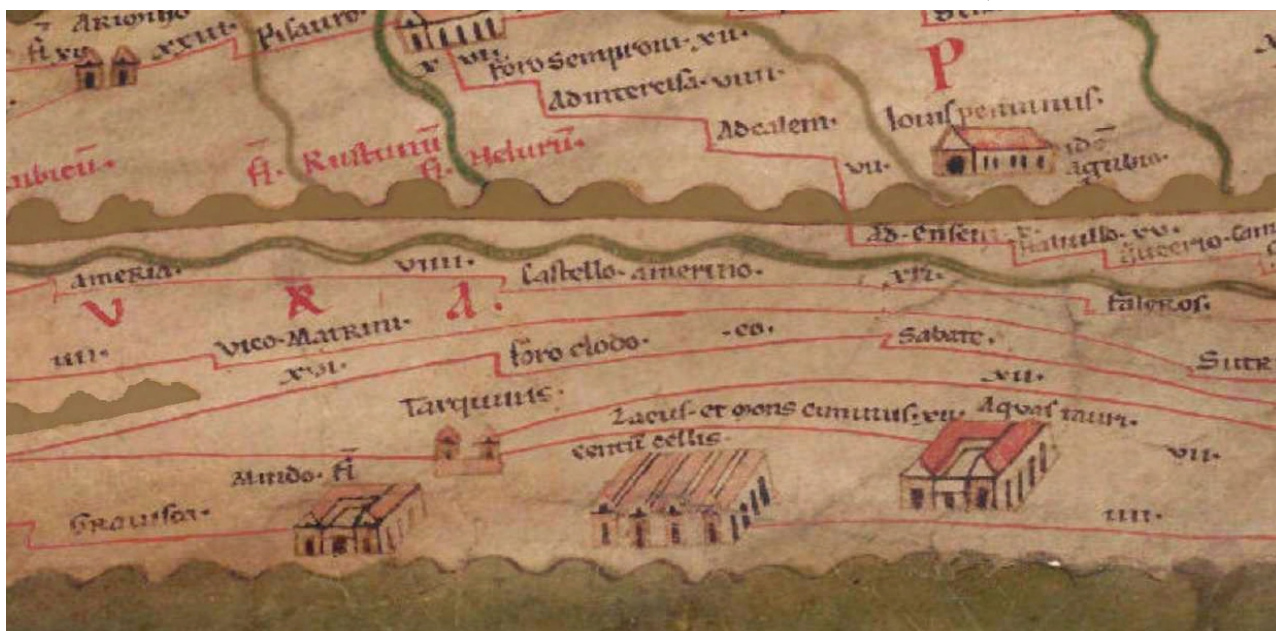 Arimino
fl. xxiiii. Pisauro.
x vii. foro Semproni. xii.
Ad intercisa. viiii.
Ad calem. vii.
P
Iouis penninus.
idē
agubio.
ubicū.
fl. Rusturū
fl. Neturū.
Ad. Ensem.
Ameria. viiii. Castello. amerino. xii. faleros.
V R A.
iiii. Vico. Matrini.
xvi. foro clodo. co. Sabate. Sutr
Tarquinis. xii.
Lacus. et mons ciminus. Aquas tauri.
centū cellis. vii.
Mindo. fl
Grauisca. iiii.